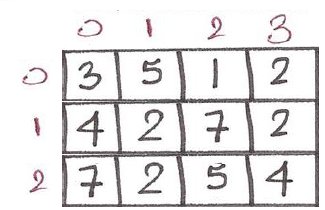 0 1 2 3
0 3 5 1 2
1 4 2 7 2
2 7 2 5 4